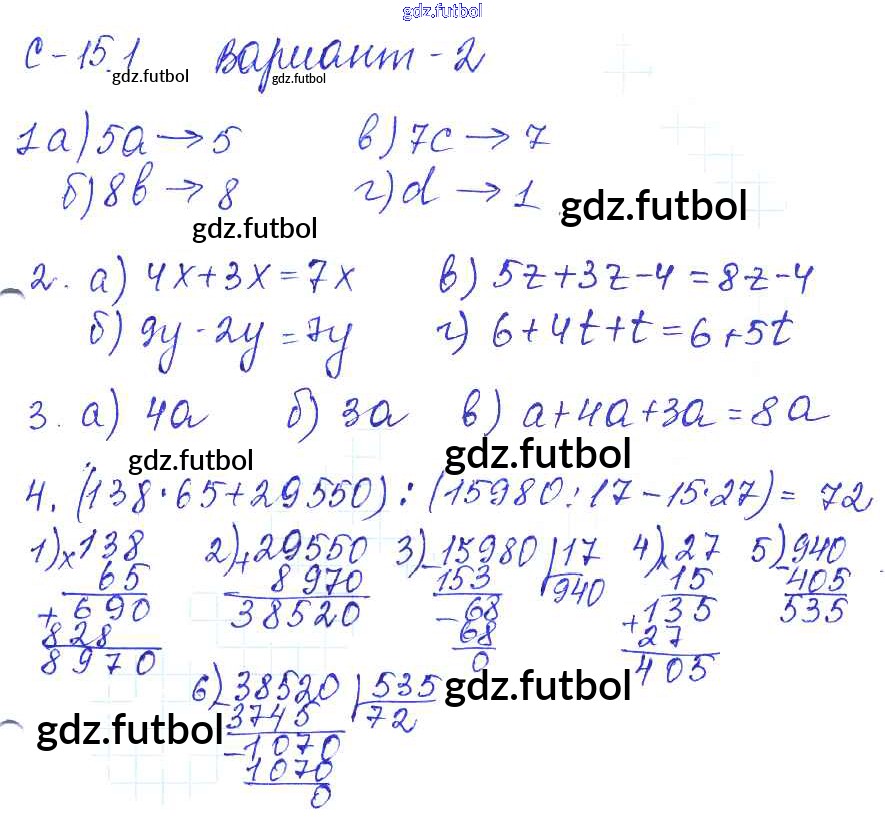 gdz.futbol
С-15.1 Вариант-2
gdz.futbol gdz.futbol
1а) 5a → 5 в) 7c → 7
б) 8b → 8 г) d → 1 gdz.futbol
gdz.futbol
2. а) 4x+3x=7x в) 5z+3z-4=8z-4
б) 9y-2y=7y г) 6+4t+t=6+5t
3. а) 4a б) 3a в) a+4a+3a=8a
gdz.futbol gdz.futbol
4. (138·65+29550):(15980:17-15·27)=72
1) × 138 2) + 29550 3) - 15980 | 17 4) × 27 5) - 940
65 8970 153 940 15 405
+ 690 38520 - 68 + 135 535
828 68 27
8970 0 405
6) - 38520 | 535 gdz.futbol
gdz.futbol 3745 72
- 1070
1070
0